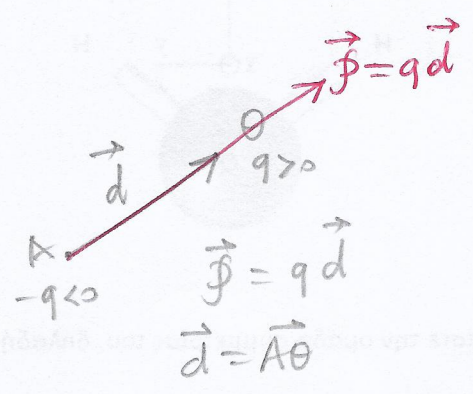 𝓅⃗ = q d⃗
Θ
d⃗
q>0
A
-q<0
𝓅⃗ = q d⃗
d⃗ = AΘ⃗